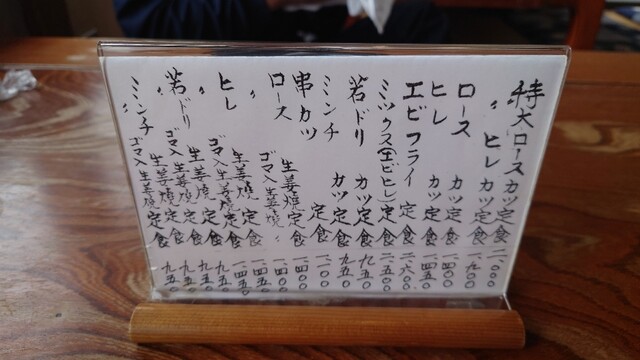 特大ロースカツ定食
〃 ヒレカツ定食 一.九〇〇
ロース カツ定食 一.四〇〇
ヒレ カツ定食 一.四五〇
エビフライ定食 二.六〇〇
ミックス(エビヒレ)定食 二.五〇〇
若ドリ カツ定食 九五〇
ミンチ カツ定食 九五〇
串カツ 定食 一.一〇〇
ロース 生姜焼定食 一.四〇〇
〃 ゴマ入生姜焼 〃 一.四五〇
ヒレ 生姜焼定食 一.四五〇
〃 ゴマ入生姜焼定食
若ドリ 生姜焼定食 九五〇
〃 ゴマ入生姜焼定食 九五〇
ミンチ 生姜焼定食 九五〇
〃 ゴマ入生姜焼定食 九五〇